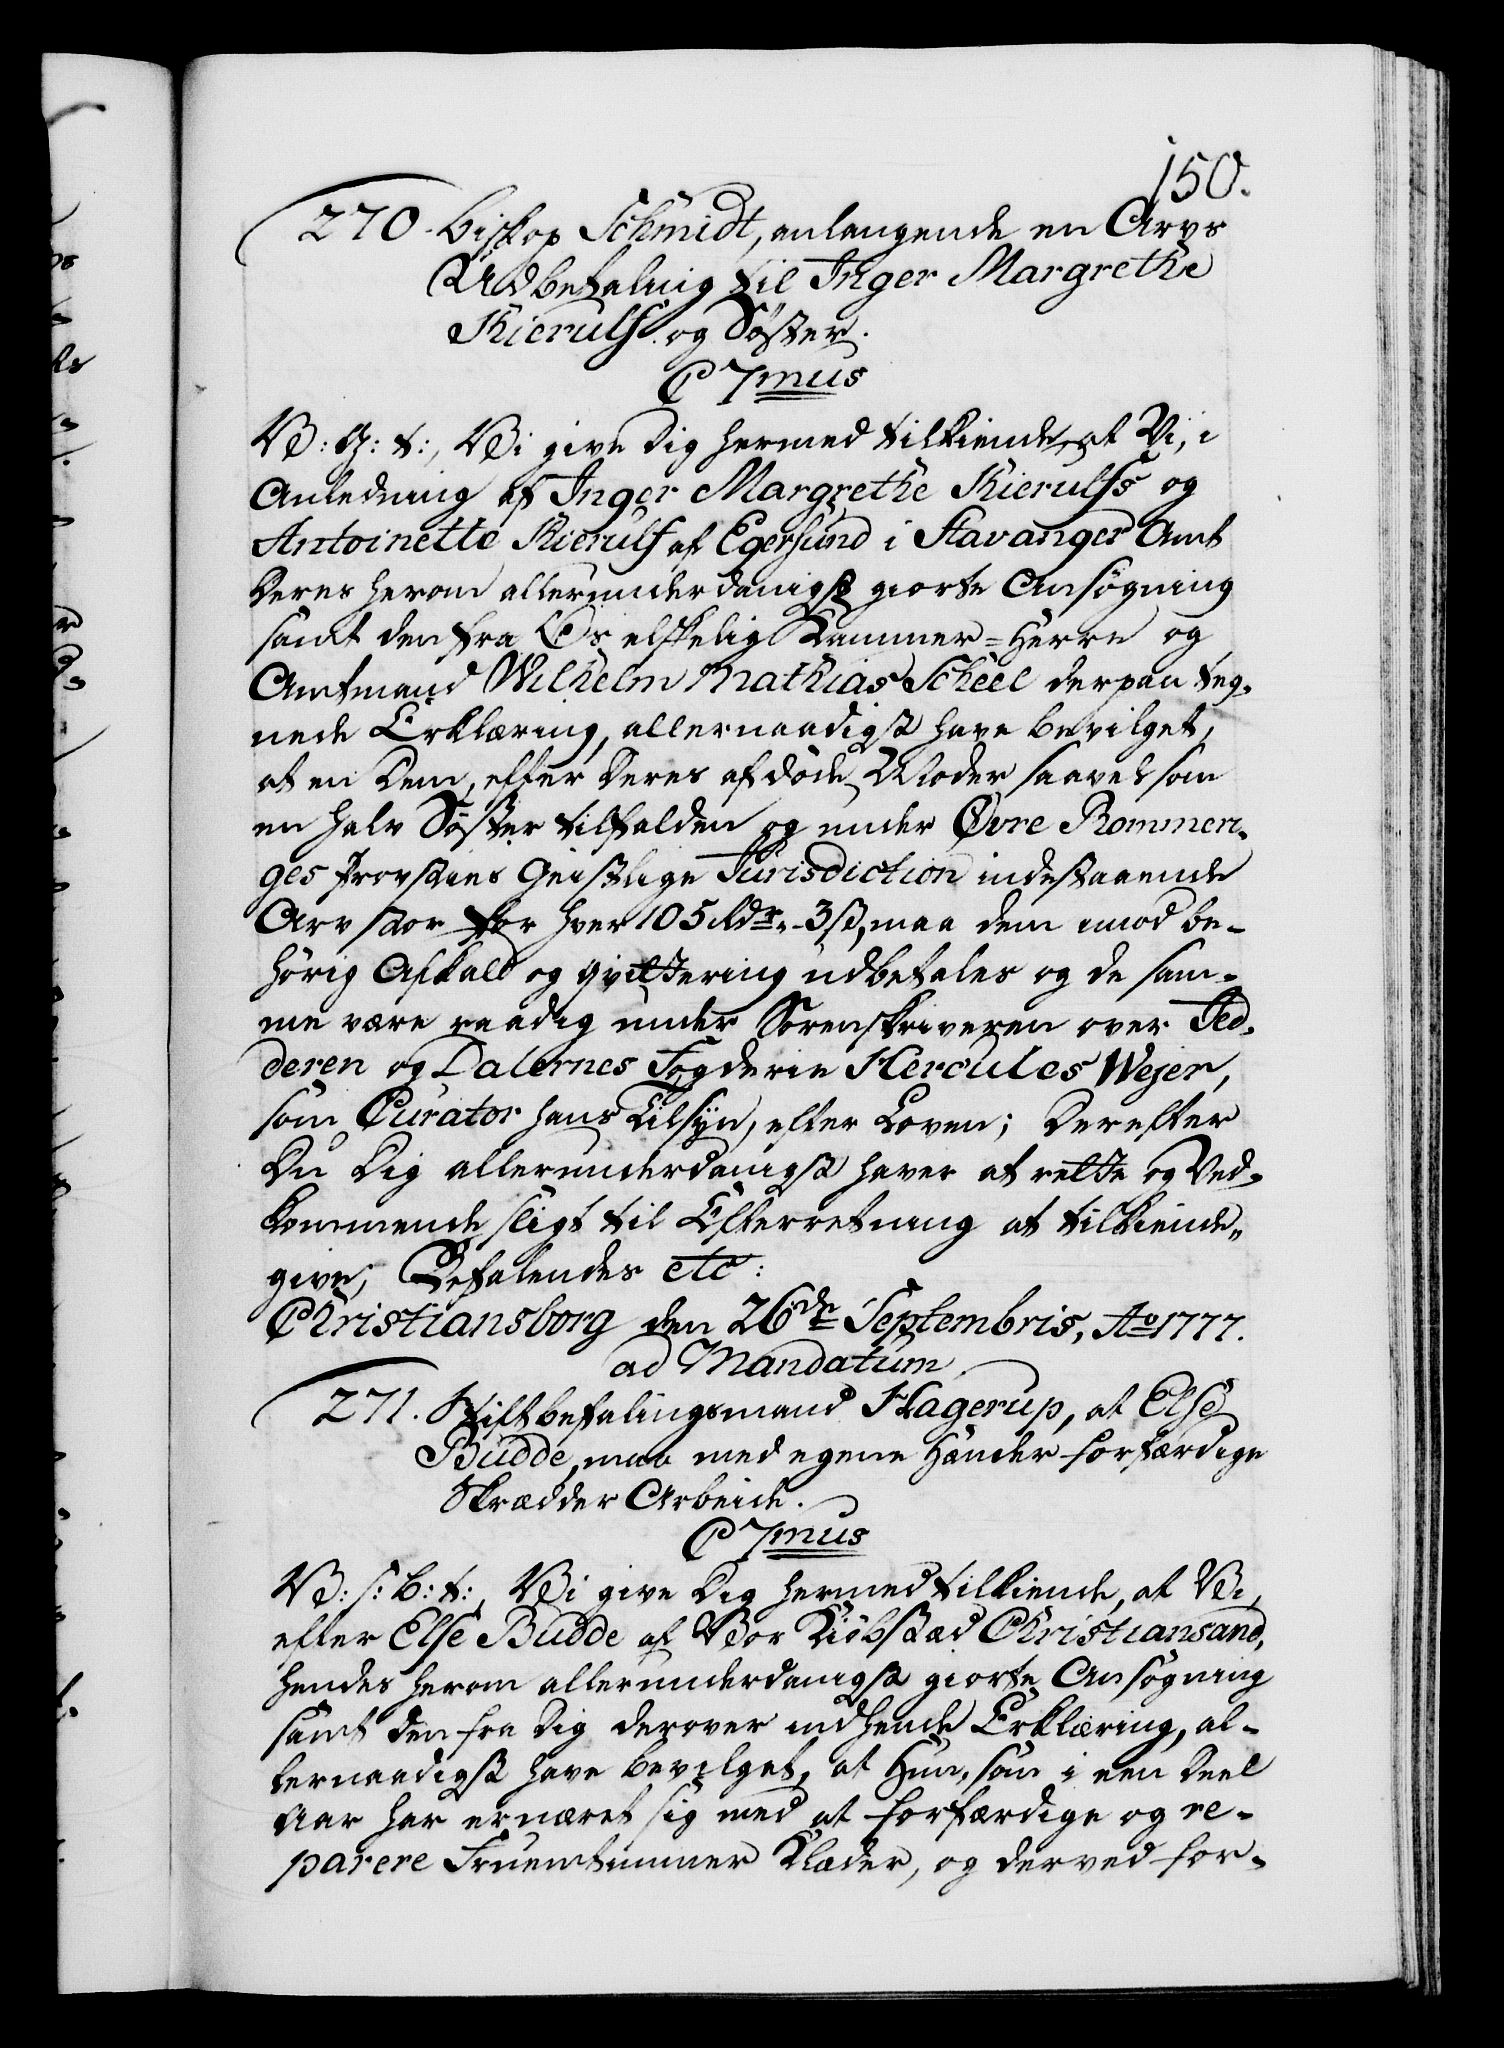 150.
270. Biskop Schmidt, anlangende en Arvs
Udbetaling til Inger Margrethe
Kierulf og Søster.
C 7mus
V: G: t:, Vi give Dig hermed tilkiende, at Vi, i
Anledning af Inger Margrethe Kierulfs og
Antoinette Kierulf af Egersund i Stavanger Amt
Deres herom allerunderdanigst giorte Ansøgning
samt den fra Os elskelig Kammer-Herre og
Amtmand Wilhelm Mathias Scheel derpaa teg-
nede Erklæring, allernaadigst have bevilget,
at en Dem, efter Deres afdøde Moder saavelsom
en halv Søster tilfalden og under Øvre Rommeri-
ges Provsties Geistlige Jurisdiction indestaaende
Arv stor for hver 105 Rdr. 3 ß, maa dem imod be-
hørig Afkald og qvittering udbetales og de sam-
me være raadig under Sorenskriveren over Jed-
deren og Dalernes Fogderie Hercules Wejer,
som Curator hans Tilsyn, efter Loven; Derefter
Du Dig allerunderdanigst haver at rette og Ved-
kommende sligt til Efterretning at tilkiende-
give; Befalendes etc:
Christiansborg den 26de Septembris, Ao 1777.
ad Mandatum
271. Stiftbefalingsmand Hagerup, at Else
Budde, maa med egene Hænder forfærdige
Skrædder Arbeide.
C 7mus
V: s: b: t:, Vi give Dig hermed tilkiende, at Vi,
efter Else Budde af Vor Kiøbstæd Christiansand,
hendes herom allerunderdanigst giorte Ansøgning
samt den fra Dig derover indhente Erklæring, al-
lernaadigst have bevilget, at Hun, som i een Deel
Aar har ernæret sig med at forfærdige og re-
parere Fruentimmer Klæder, og derved for-